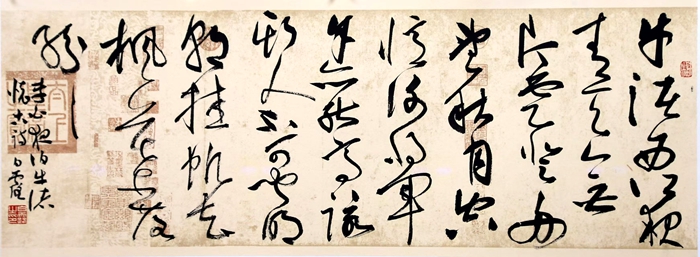 牛渚西江夜
青天無
片雲登舟
望秋月空
憶謝將軍
余亦能高詠
斯人不可聞明
朝挂帆去
楓葉落紛
紛
李白夜泊牛渚
懷古詩